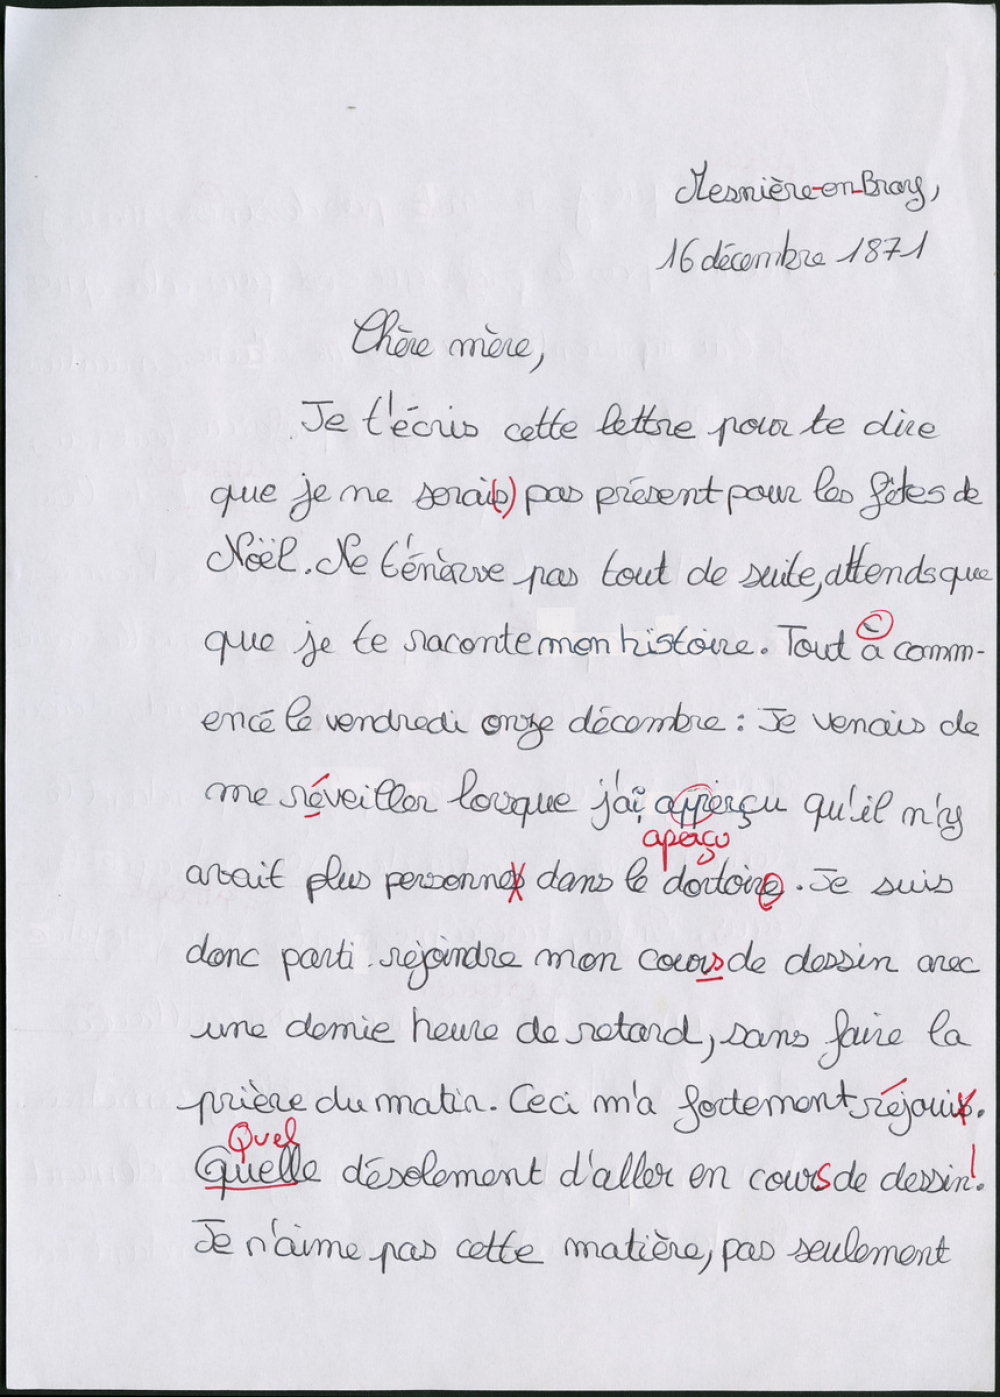 Mesnière-en-Bray,
16 décembre 1871
Chère mère,
Je t'écris cette lettre pour te dire
que je ne serai(s) pas présent pour les fêtes de
Noël. Ne t'énèrve pas tout de suite, attends que
que je te raconte mon histoire. Tout à comm-
encé le vendredi onze décembre : Je venais de
me réveiller lorsque j'ai apperçu qu'il n'y
aperçu
avait plus personnes dans le dortoire. Je suis
donc parti rejoindre mon cours de dessin avec
une demie heure de retard, sans faire la
prière du matin. Ceci m'a fortement réjouit.
Quel
Quelle désolement d'aller en cours de dessin!.
Je n'aime pas cette matière, pas seulement